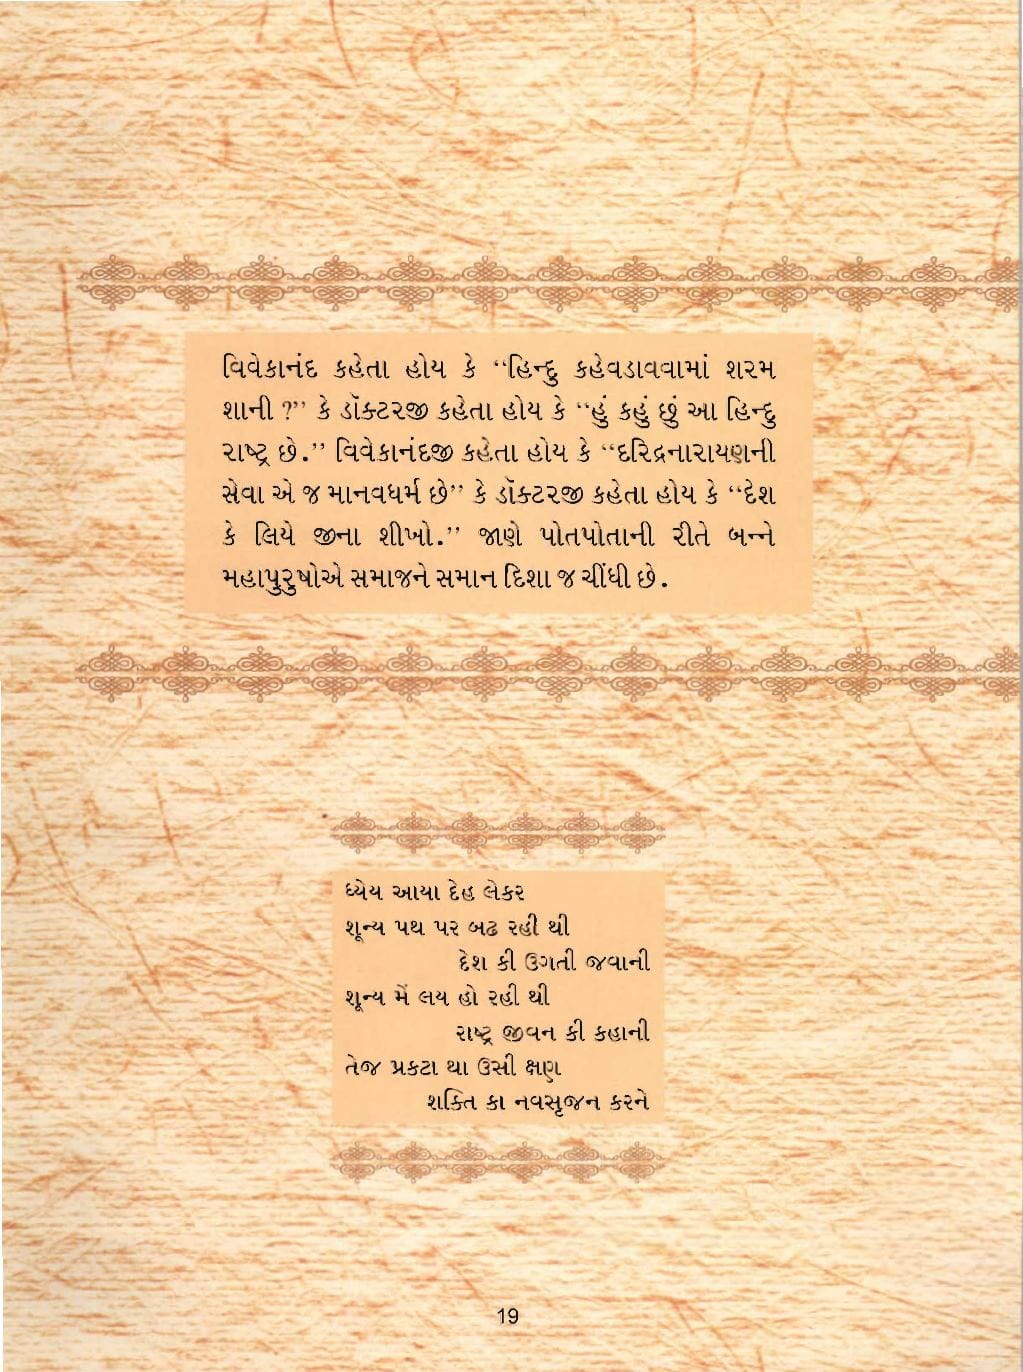 વિવેકાનંદ કહેતા હોય કે “હિન્દુ કહેવડાવવામાં શરમ
શાની ?” કે ડૉક્ટરજી કહેતા હોય કે “હું કહું છું આ હિન્દુ
રાષ્ટ્ર છે.” વિવેકાનંદજી કહેતા હોય કે “દરિદ્રનારાયણની
સેવા એ જ માનવધર્મ છે” કે ડૉક્ટરજી કહેતા હોય કે “દેશ
કે લિયે જીના શીખો.” જાણે પોતપોતાની રીતે બન્ને
મહાપુરુષોએ સમાજને સમાન દિશા જ ચીંધી છે.
ધ્યેય આયા દેહ લેકર
શૂન્ય પથ પર બઢ રહી થી
દેશ કી ઉગતી જવાની
શૂન્ય મેં લય હો રહી થી
રાષ્ટ્ર જીવન કી કહાની
તેજ પ્રકટા થા ઉસી ક્ષણ
શક્તિ કા નવસૃજન કરને
19